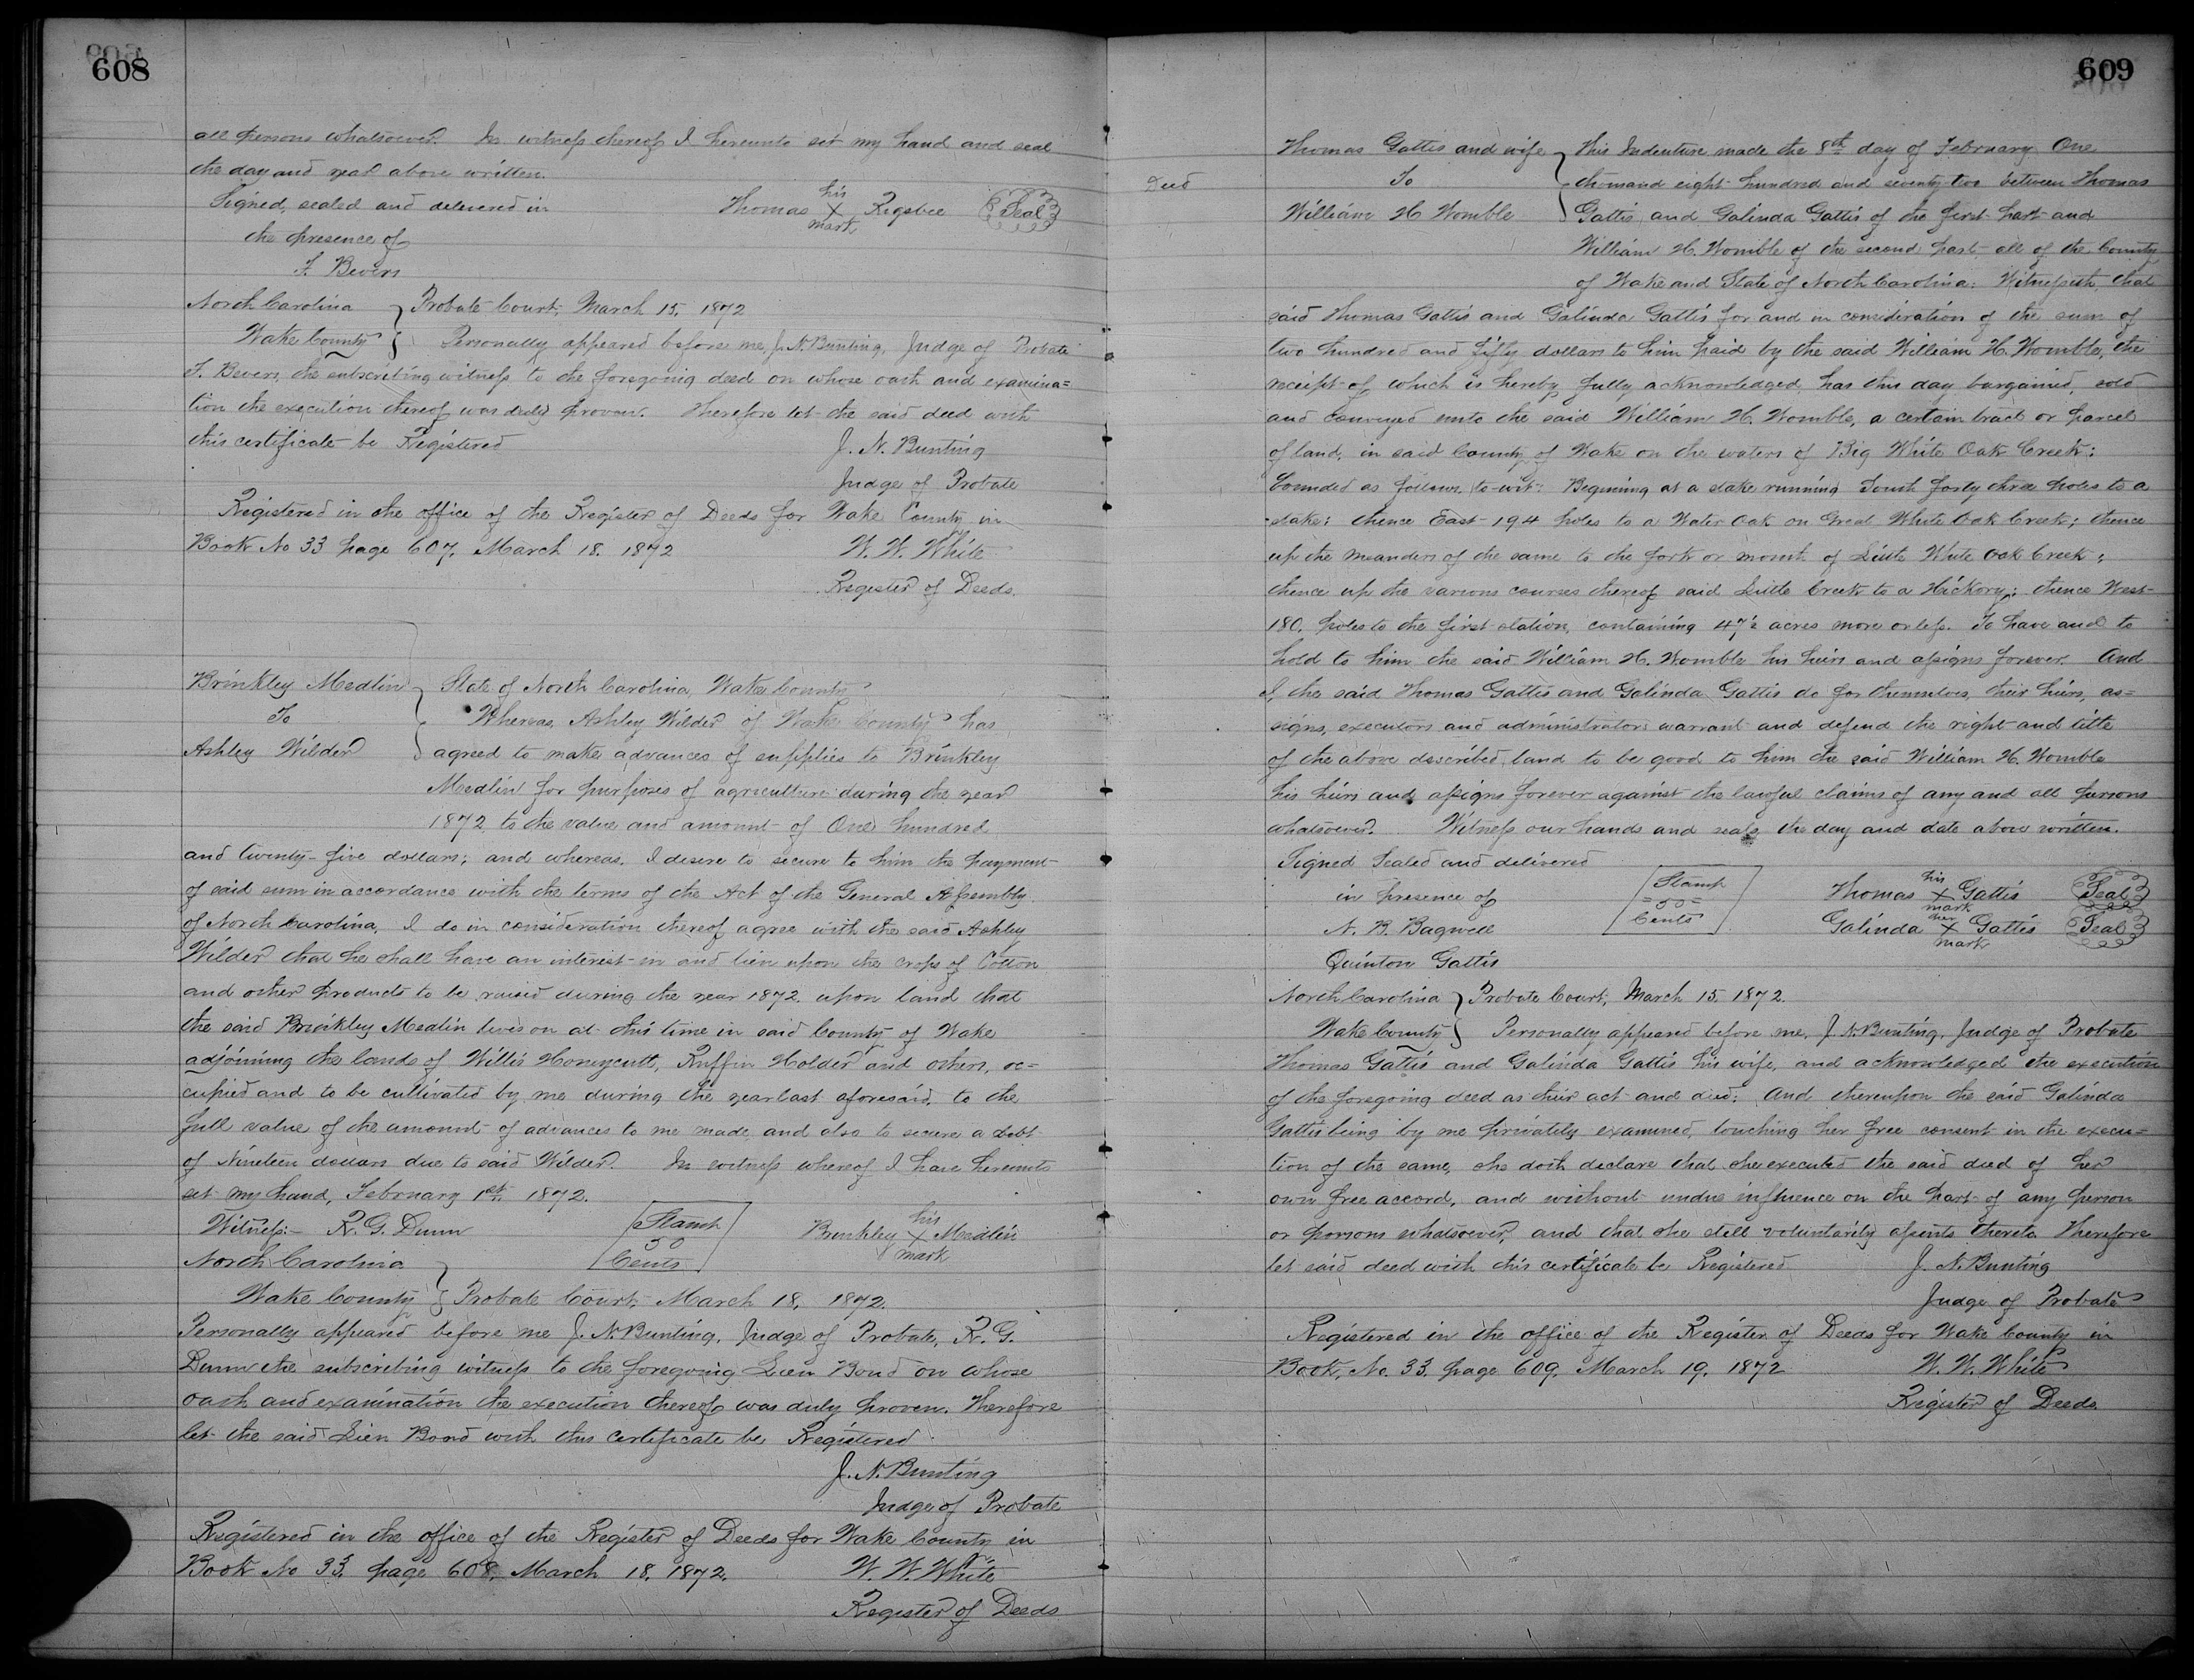 608
all persons whatsoever. In witness thereof I hereunto set my hand and seal
the day and year above written.
Signed, sealed and delivered in
the presence of
F. Bevers
Thomas his X mark Rigsbee Seal
North Carolina } Probate Court, March 15, 1872
Wake County } Personally appeared before me, J. N. Bunting, Judge of Probate
F. Bevers, the subscribing witness to the foregoing deed on whose oath and examina=
tion the execution thereof was duly proven. Therefore let the said deed with
this certificate be Registered
J. N. Bunting
Judge of Probate
Registered in the office of the Register of Deeds for Wake County in
Book No 33 page 607, March 18. 1872 W. W. White
Register of Deeds.
Brinkley Medlin
To
Ashley Wilder
State of North Carolina, Wake County
Whereas, Ashley Wilder of Wake County has
agreed to make advances of supplies to Brinkley
Medlin for purposes of agriculture during the year
1872 to the value and amount of One hundred
and twenty-five dollars; and whereas, I desire to secure to him the payment
of said sum in accordance with the terms of the Act of the General Assembly
of North Carolina, I do in consideration thereof agree with the said Ashley
Wilder that he shall have an interest in and lien upon the crops of Cotton
and other products to be raised during the year 1872 upon land that
the said Brinkley Medlin lives on at this time in said County of Wake
adjoining the lands of Willis Honeycutt, Ruffin Holder and others, oc=
cupied and to be cultivated by me during the year last aforesaid, to the
full value of the amount of advances to me made, and also to secure a debt
of Nineteen dollars due to said Wilder. In witness whereof I have hereunto
set my hand, February 1st 1872.
Witness:- R. G. Dunn
Stamp
50
Cents
Brinkley his X mark Medlin
North Carolina
Wake County } Probate Court, March 18, 1872.
Personally appeared before me J. N. Bunting, Judge of Probate, R. G.
Dunn the subscribing witness to the foregoing Lien Bond on whose
oath and examination the execution thereof was duly proven. Therefore
let the said Lien Bond with this certificate be Registered
J. N. Bunting
Judge of Probate
Registered in the office of the Register of Deeds for Wake County in
Book No 33, page 608, March 18, 1872. W. W. White
Register of Deeds
609
Deed
Thomas Gattis and wife
To
William H Womble
This Indenture made the 8th day of February One
thousand eight hundred and seventy-two between Thomas
Gattis and Galinda Gattis of the first part and
William H. Womble of the second part, all of the County
of Wake and State of North Carolina: Witnesseth, that
said Thomas Gattis and Galinda Gattis for and in consideration of the sum of
two hundred and fifty dollars to him paid by the said William H. Womble, the
receipt of which is hereby fully acknowledged, has this day bargained, sold
and conveyed unto the said William H. Womble, a certain tract or parcel
of land, in said County of Wake on the waters of Big White Oak Creek:
bounded as follows, to-wit: Begining at a stake running South forty three poles to a
stake; thence East 194 poles to a Water Oak on Great White Oak Creek; thence
up the meanders of the same to the fork or mouth of Little White Oak Creek;
thence up the various courses thereof said Little Creek to a Hickory; thence West
180, poles to the first station, containing 47½ acres more or less. To have and to
hold to him the said William H. Womble his heirs and assigns forever. And
I, the said Thomas Gattis and Galinda Gattis do for themselves, their heirs, as=
signs, executors and administrators warrant and defend the right and title
of the above described land to be good to him the said William H. Womble
his heirs and assigns forever against the lawful claims of any and all persons
whatsoever. Witness our hands and seals the day and date above written.
Signed Sealed and delivered
in presence of
N. B. Bagwell
Quinton Gattis
Stamp
=50=
Cents
Thomas his X mark Gattis Seal
Galinda her X mark Gattis Seal
North Carolina } Probate Court, March 15, 1872.
Wake County } Personally appeared before me, J. N. Bunting, Judge of Probate
Thomas Gattis and Galinda Gattis his wife, and acknowledged the execution
of the foregoing deed as their act and deed; And thereupon the said Galinda
Gattis being by me privately examined, touching her free consent in the execu=
tion of the same, she doth declare that she executed the said deed of her
own free accord, and without undue influence on the part of any person
or persons whatsoever, and that she still voluntarily assents thereto. Therefore
let said deed with this certificate be Registered
J. N. Bunting
Judge of Probate
Registered in the office of the Register of Deeds for Wake County in
Book, No. 33, page 609, March 19, 1872 W. W. White
Register of Deeds.